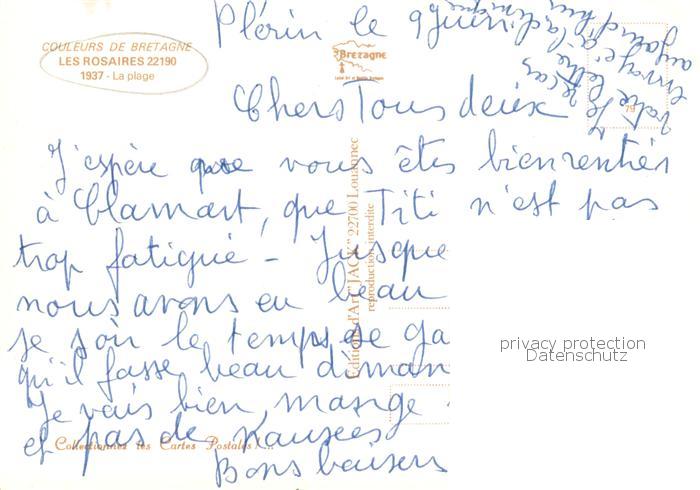 COULEURS DE BRETAGNE
LES ROSAIRES 22190
1937 - La plage
Bretagne
Plérin le 9 juin
Chers Tous deux
J'espère que vous êtes bien rentrés
à Clamart, que Titi n'est pas
trop fatigué - Jusque
nous avons eu beau
ce soir le temps se ga
qu'il fasse beau deman
Je vais bien, mange
et pas de nausées
Bons baisers
votre lettre
envoyé à la clinique
aujourd'hui
Editions d'Art "JACK" 22700 Louannec
reproduction interdite
Collectionnez les Cartes Postales !...
privacy protection
Datenschutz